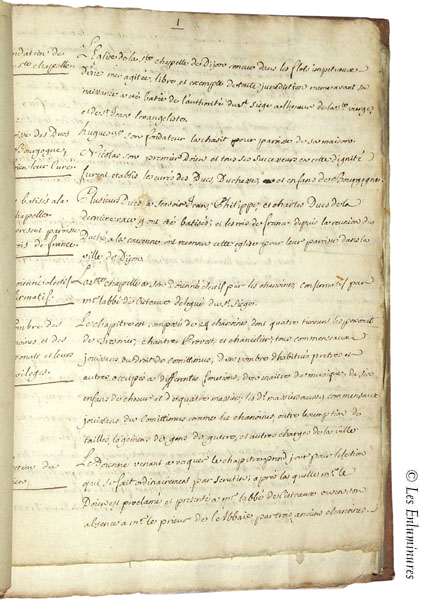 1
ndation de
ste chapelle
L'Eglise de la ste chapelle de Dijon conceue dans les flots impetueux
d'une mer agitée, libre et exempte de toute jurisdiction mesme avant sa
naissance a esté batie de l'authorité du st Siége a l'honneur de la ste vierge,
et de st Jean l'evangeliste.
ise des Ducs
Bourgogne,
ien leur curé
Hugues son fondateur la choisit pour parroisse de sa maison
Nicolas son premier Doien et tous ses successeurs en cette dignité
furent établis les curés des Ducs, Duchesses, et enfans de Bourgogne.
batisés a la
chapelle
present parroisse
ois de france
Plusieurs Ducs, a sçavoir Jean, Philippe, et charles Ducs de la
derniere race y ont été batisés; et les rois de france depuis la reunion du
Duché a la couronne ont reconnu cette eglise pour leur parroisse dans la
ville de Dijon.
La ste chapelle a son doienné electif par les chanoines, confirmatif par
mr l'abbé de Citeaux delegué du st Siége.
ombre des
noines et des
et leurs
vileges
Le chapitre est composé de 24 chanoines, dont quatre
de Tresorier, chantre, Prevost, et chancelier, tous commensaux
jouissans du droit de Committimus, d'un nombre d'habitués prestres et
autres occupés a differentes fonctions, d'un maitre de musique, de six
enfans de choeur et de quatre
jouissans du Committimus comme les chanoines, outre l'exemption de
tailles, logemens de gens de guerre, et autres charges de la ville
Le Doienné venant a vaquer le chapitre prend jour pour l'election
qui se fait ordinairement par scrutin; après laquelle mr le
Doien est proclamé et presenté a mr l'abbé de Citeaux ou en son
absence a mr le prieur de l'Abbaie par trois anciens chanoines.
© Les Enluminures